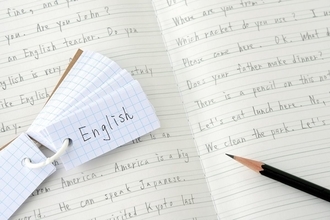 fine, and you
you. Are you John?
an English teacher. Do you
English is very
like English
America. America is a big
world. He can speak Japanese.
visited Kyoto last
English
Where are you from
Which racket do you use?
Please come here. O.K. What
Does your father make dinner?
There is a pencil on this
Let's eat lunch here. No,
We clean the park. Let's